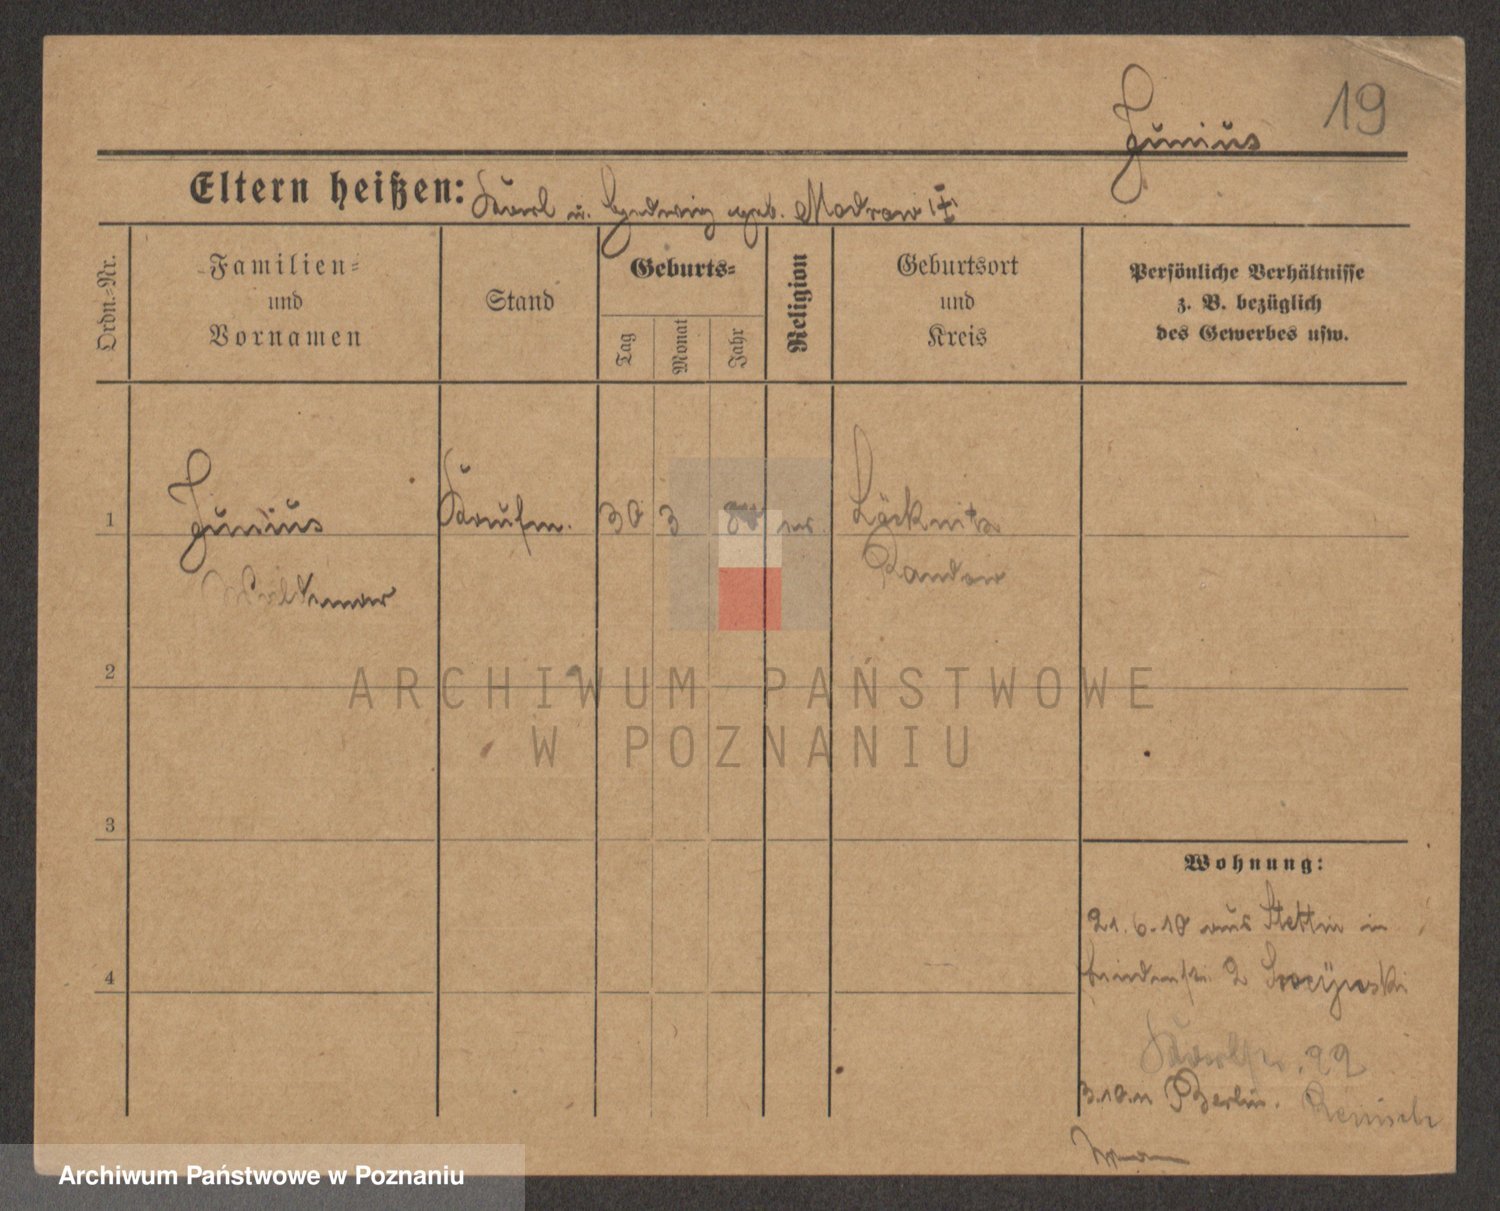 19
Junius
Eltern heißen: Karl u. Hedwig geb. Modrow
Ordn.-Nr.
Familien-
und
Vornamen
Stand
Geburts-
Tag
Monat
Jahr
Religion
Geburtsort
und
Kreis
Persönliche Verhältnisse
z. B. bezüglich
des Gewerbes usw.
1
Junius
Kaufm.
30
3
ev.
Löcknitz
Randow
Woldemar
2
ARCHIWUM PAŃSTWOWE
W POZNANIU
3
Wohnung:
21.6.10 aus Stettin in
4
2
Karlstr. 22
3.10.11 Berlin.
Archiwum Państwowe w Poznaniu